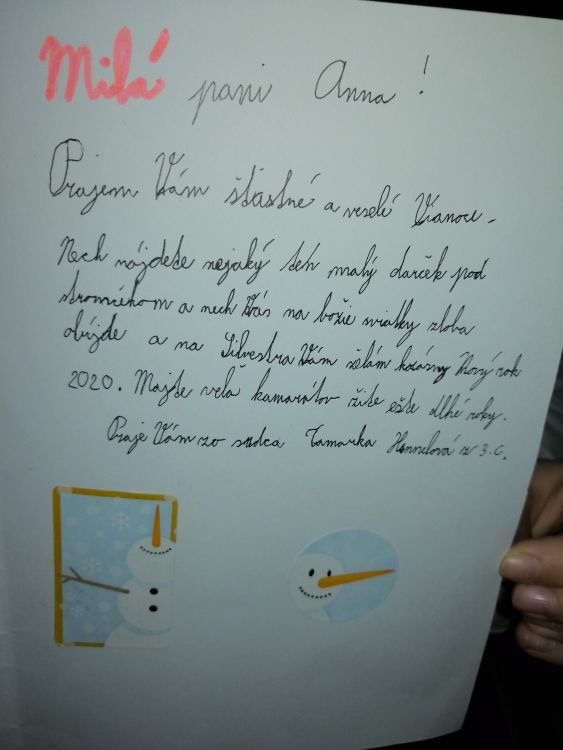 Milá pani Anna!
Prajem Vám štastné a veselé Vianoce.
Nech nájdete nejaký ten malý darček pod
stromčekom a nech Vás na božie sviatky zloba
obíjde a na Silvestra Vám želám krásny Nový rok
2020. Majte vela kamarátov žite ešte dlhé roky.
Praje Vám zo srdca Tamarka z 3.C.